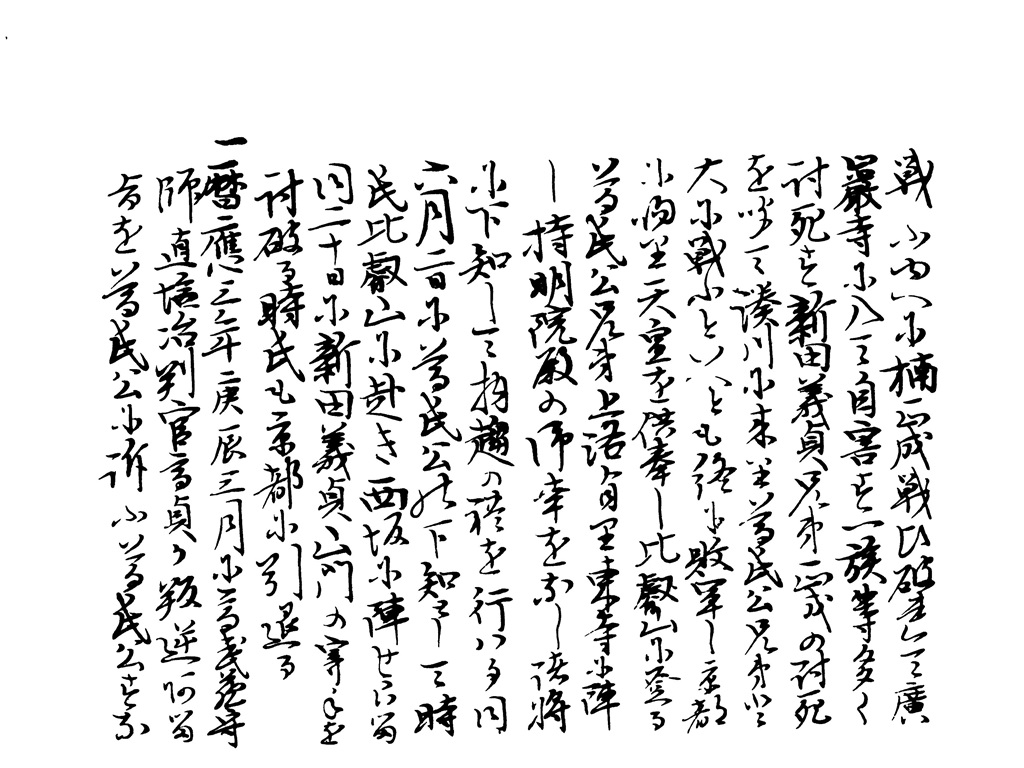 戦ふ内八に楠正成戦ひ破れて廣
巖寺に入て自害す一族等多く
討死す新田義貞兄弟正成の討死
を聞て湊川に来り尊氏公兄弟と
大に戦ふといへとも終に敗軍し京都
に帰り天皇を供奉し比叡山に登る
尊氏公兄弟上洛有り東寺に陣
し持明院殿の御幸をなし諸将
に下知して拝趨の礼を行はる同
六月二日に尊氏公の下知として時
氏比叡山に赴き西坂に陣せらる
同二十日に新田義貞山門の寄手を
討破る時氏も京都に引退る
一暦應三年庚辰三月に高
師直塩冶判官高貞か叛逆
旨を尊氏公に訴ふ尊氏公すな